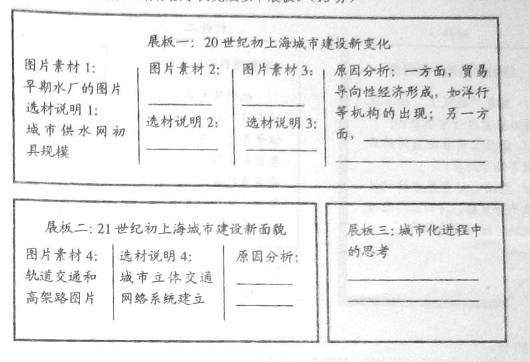 展板一：20世纪初上海城市建设新变化
图片素材1：
早期水厂的图片
选材说明1：
城市供水网初
具规模
图片素材2：
选材说明2：
图片素材3：
选材说明3：
原因分析：一方面，贸易
导向性经济形成，如洋行
等机构的出现；另一方
面，
展板二：21世纪初上海城市建设新面貌
图片素材4：
轨道交通和
高架路图片
选材说明4：
城市立体交通
网络系统建立
原因分析：
展板三：城市化进程中
的思考